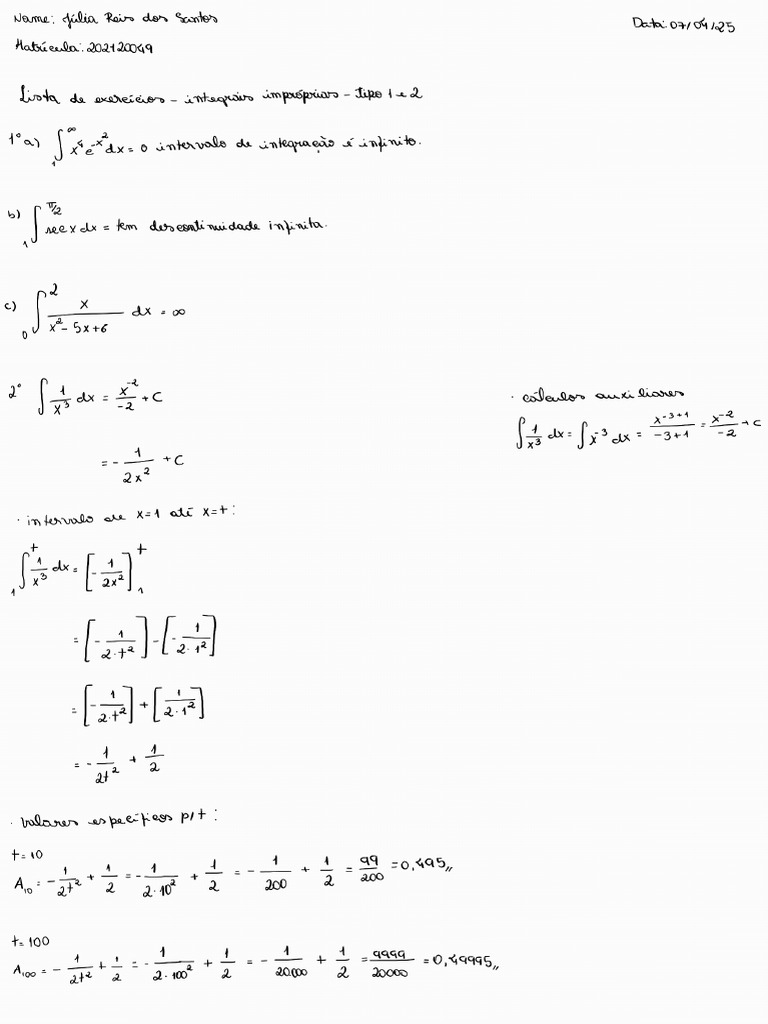 Nome: Júlia Reis dos Santos
Data: 07/04/25
Matrícula: 202120049
Lista de exercícios - integrais impróprias - tipo 1 e 2
1° a) ∫₁^∞ x⁴e^(-x²) dx = o intervalo de integração é infinito.
b) ∫₁^(π/2) sec x dx = tem descontinuidade infinita.
c) ∫₀² x/(x² - 5x + 6) dx = ∞
2° ∫ 1/x³ dx = x⁻²/-2 + C
= - 1/(2x²) + C
· cálculos auxiliares
∫ 1/x³ dx = ∫ x⁻³ dx = x⁻³⁺¹/(-3+1) = x⁻²/-2 + C
· intervalo de x=1 até x=t:
∫₁^t 1/x³ dx = [- 1/(2x²)]₁^t
= [- 1/(2·t²)] - [- 1/(2·1²)]
= [- 1/(2·t²)] + [1/(2·1²)]
= - 1/(2t²) + 1/2
· valores específicos p/ t:
t=10
A₁₀ = - 1/(2t²) + 1/2 = - 1/(2·10²) + 1/2 = - 1/200 + 1/2 = 99/200 = 0,495,,
t=100
A₁₀₀ = - 1/(2t²) + 1/2 = - 1/(2·100²) + 1/2 = - 1/20.000 + 1/2 = 9999/20000 = 0,49995,,